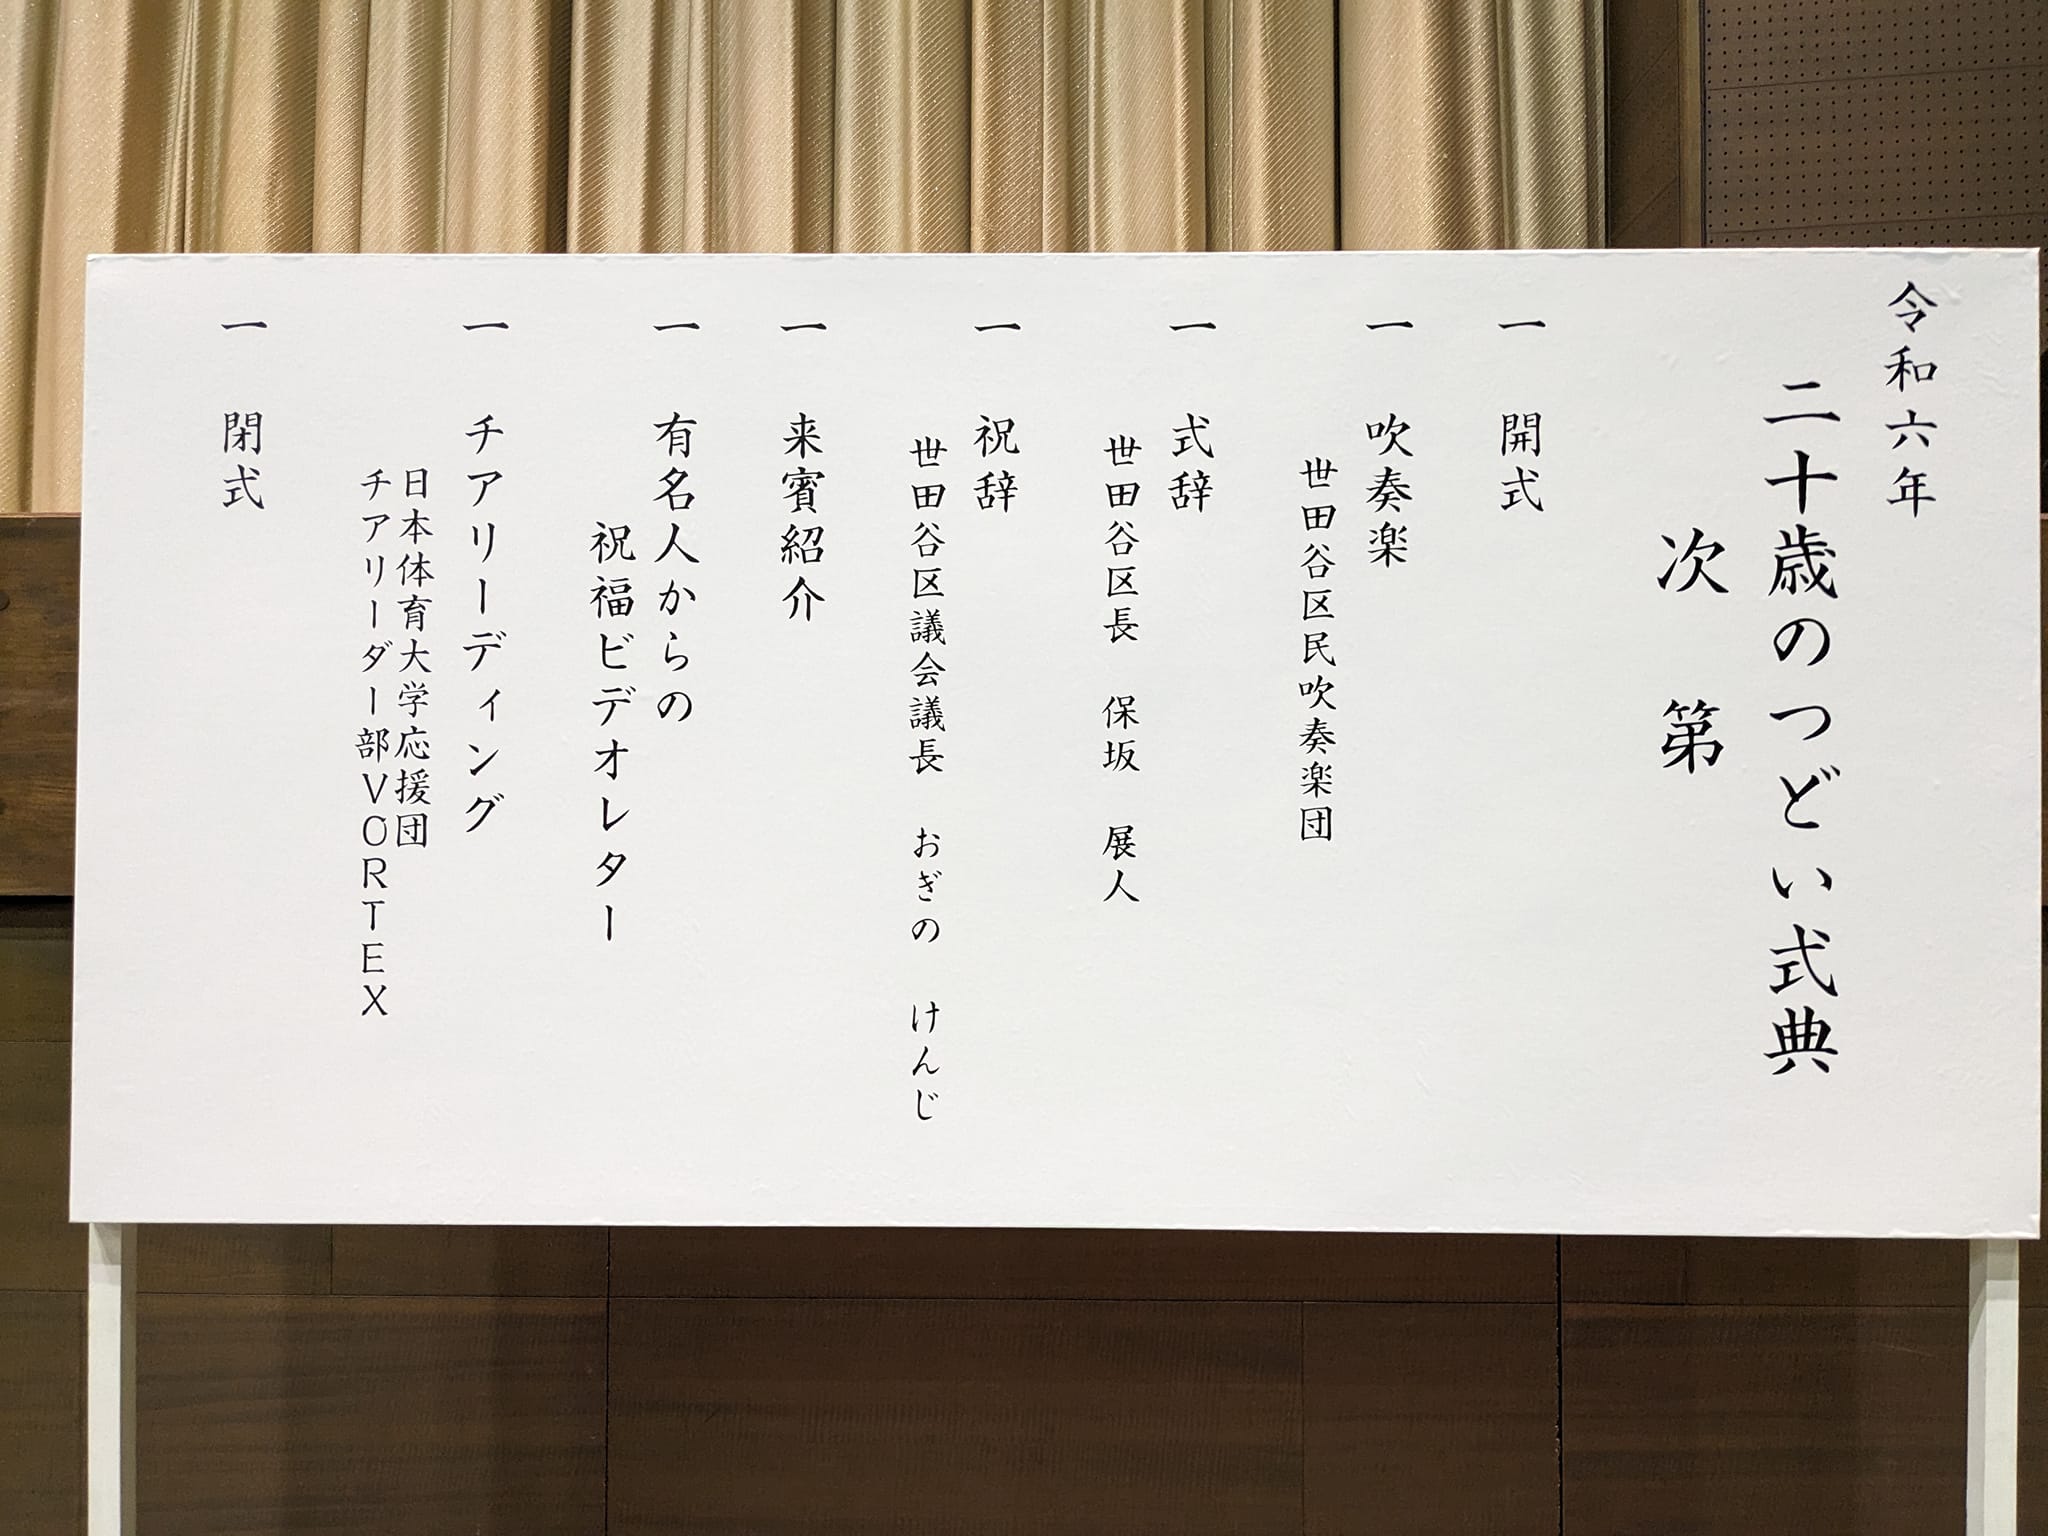 令和六年
二十歳のつどい式典
次第
一 開式
一 吹奏楽
世田谷区民吹奏楽団
一 式辞
世田谷区長 保坂 展人
一 祝辞
世田谷区議会議長 おぎの けんじ
一 来賓紹介
一 有名人からの
祝福ビデオレター
一 チアリーディング
日本体育大学応援団
チアリーダー部VORTEX
一 閉式